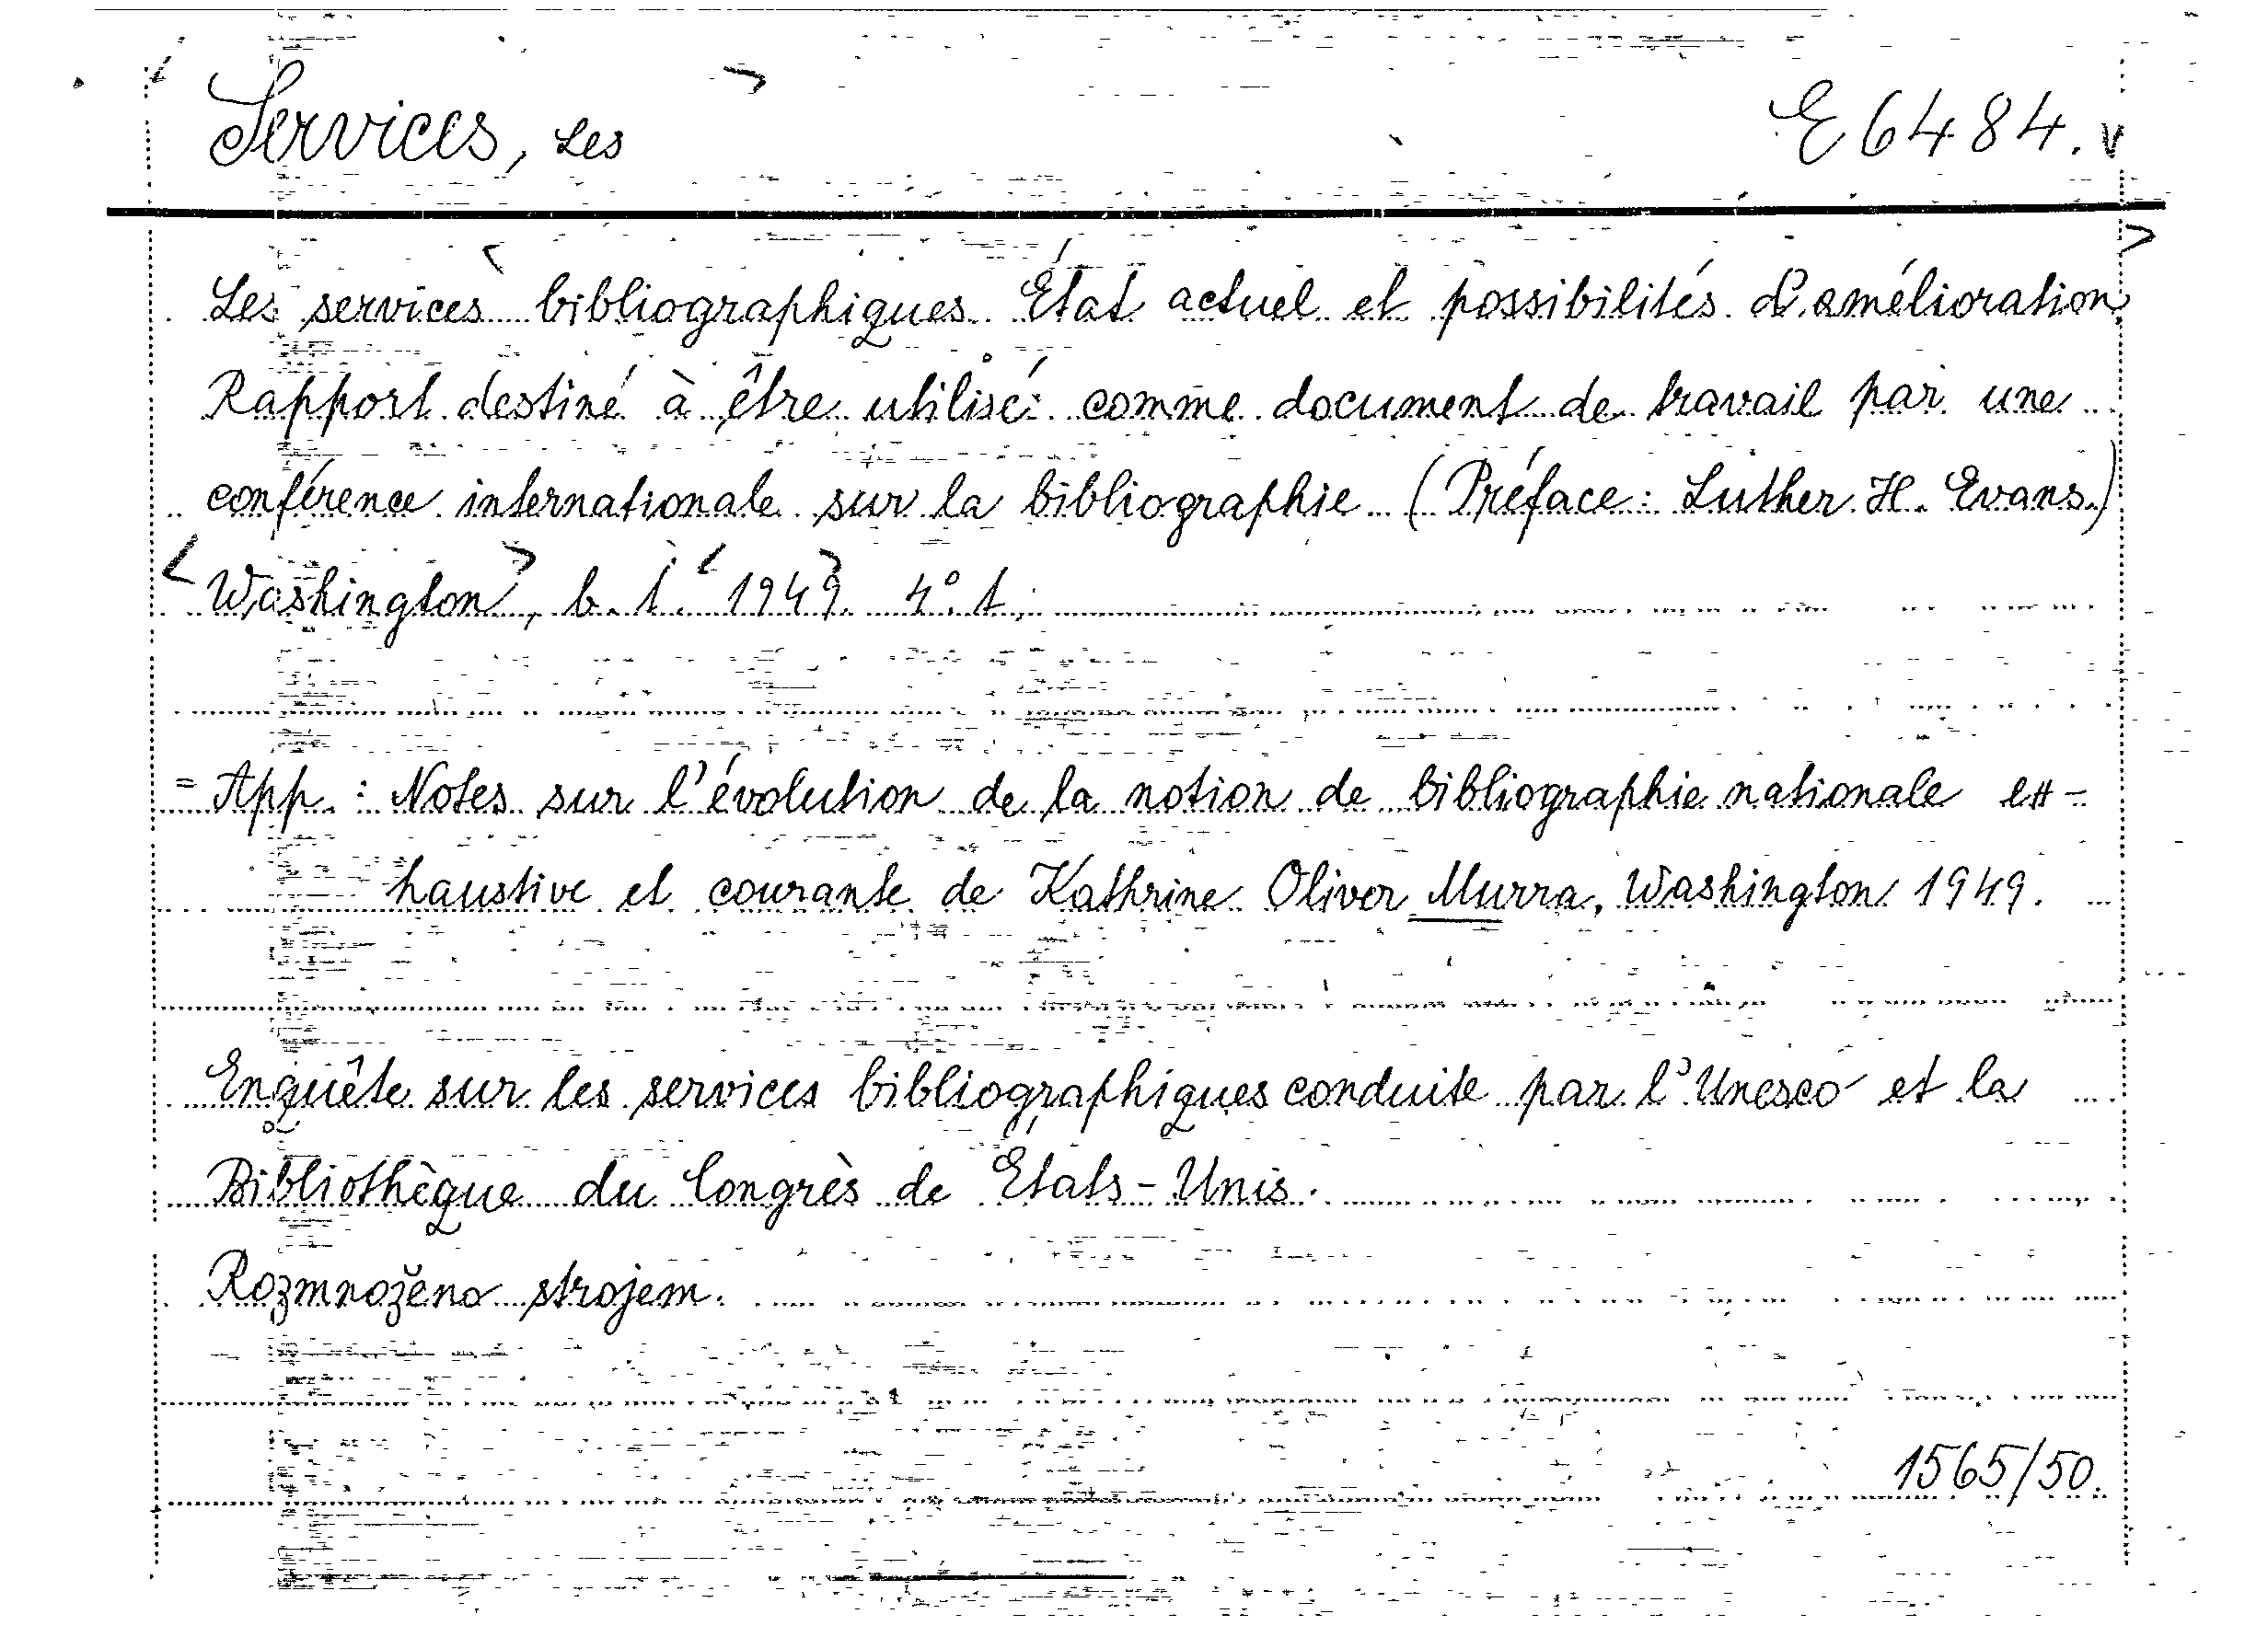 Services, Les E 6484.
Les services bibliographiques. État actuel et possibilités d'amélioration
Rapport destiné à être utilisé comme document de travail par une
conférence internationale sur la bibliographie (Préface: Luther H. Evans.)
Washington, b. t. 1949. 4°. 1.
= App.: Notes sur l'évolution de la notion de bibliographie nationale ex-
haustive et courante de Kathrine Oliver Murra, Washington 1949.
Enquête sur les services bibliographiques conduite par l'Unesco et la
Bibliothèque du Congrès de États-Unis.
Rozmnoženo strojem.
1565/50.